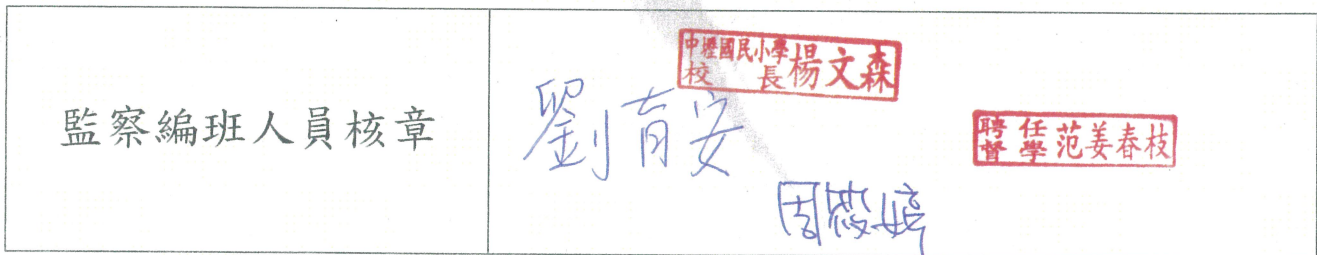 監察編班人員核章
中壢國民小學
校長楊文森
劉育安
聘任
督學范姜春枝
周筱婷